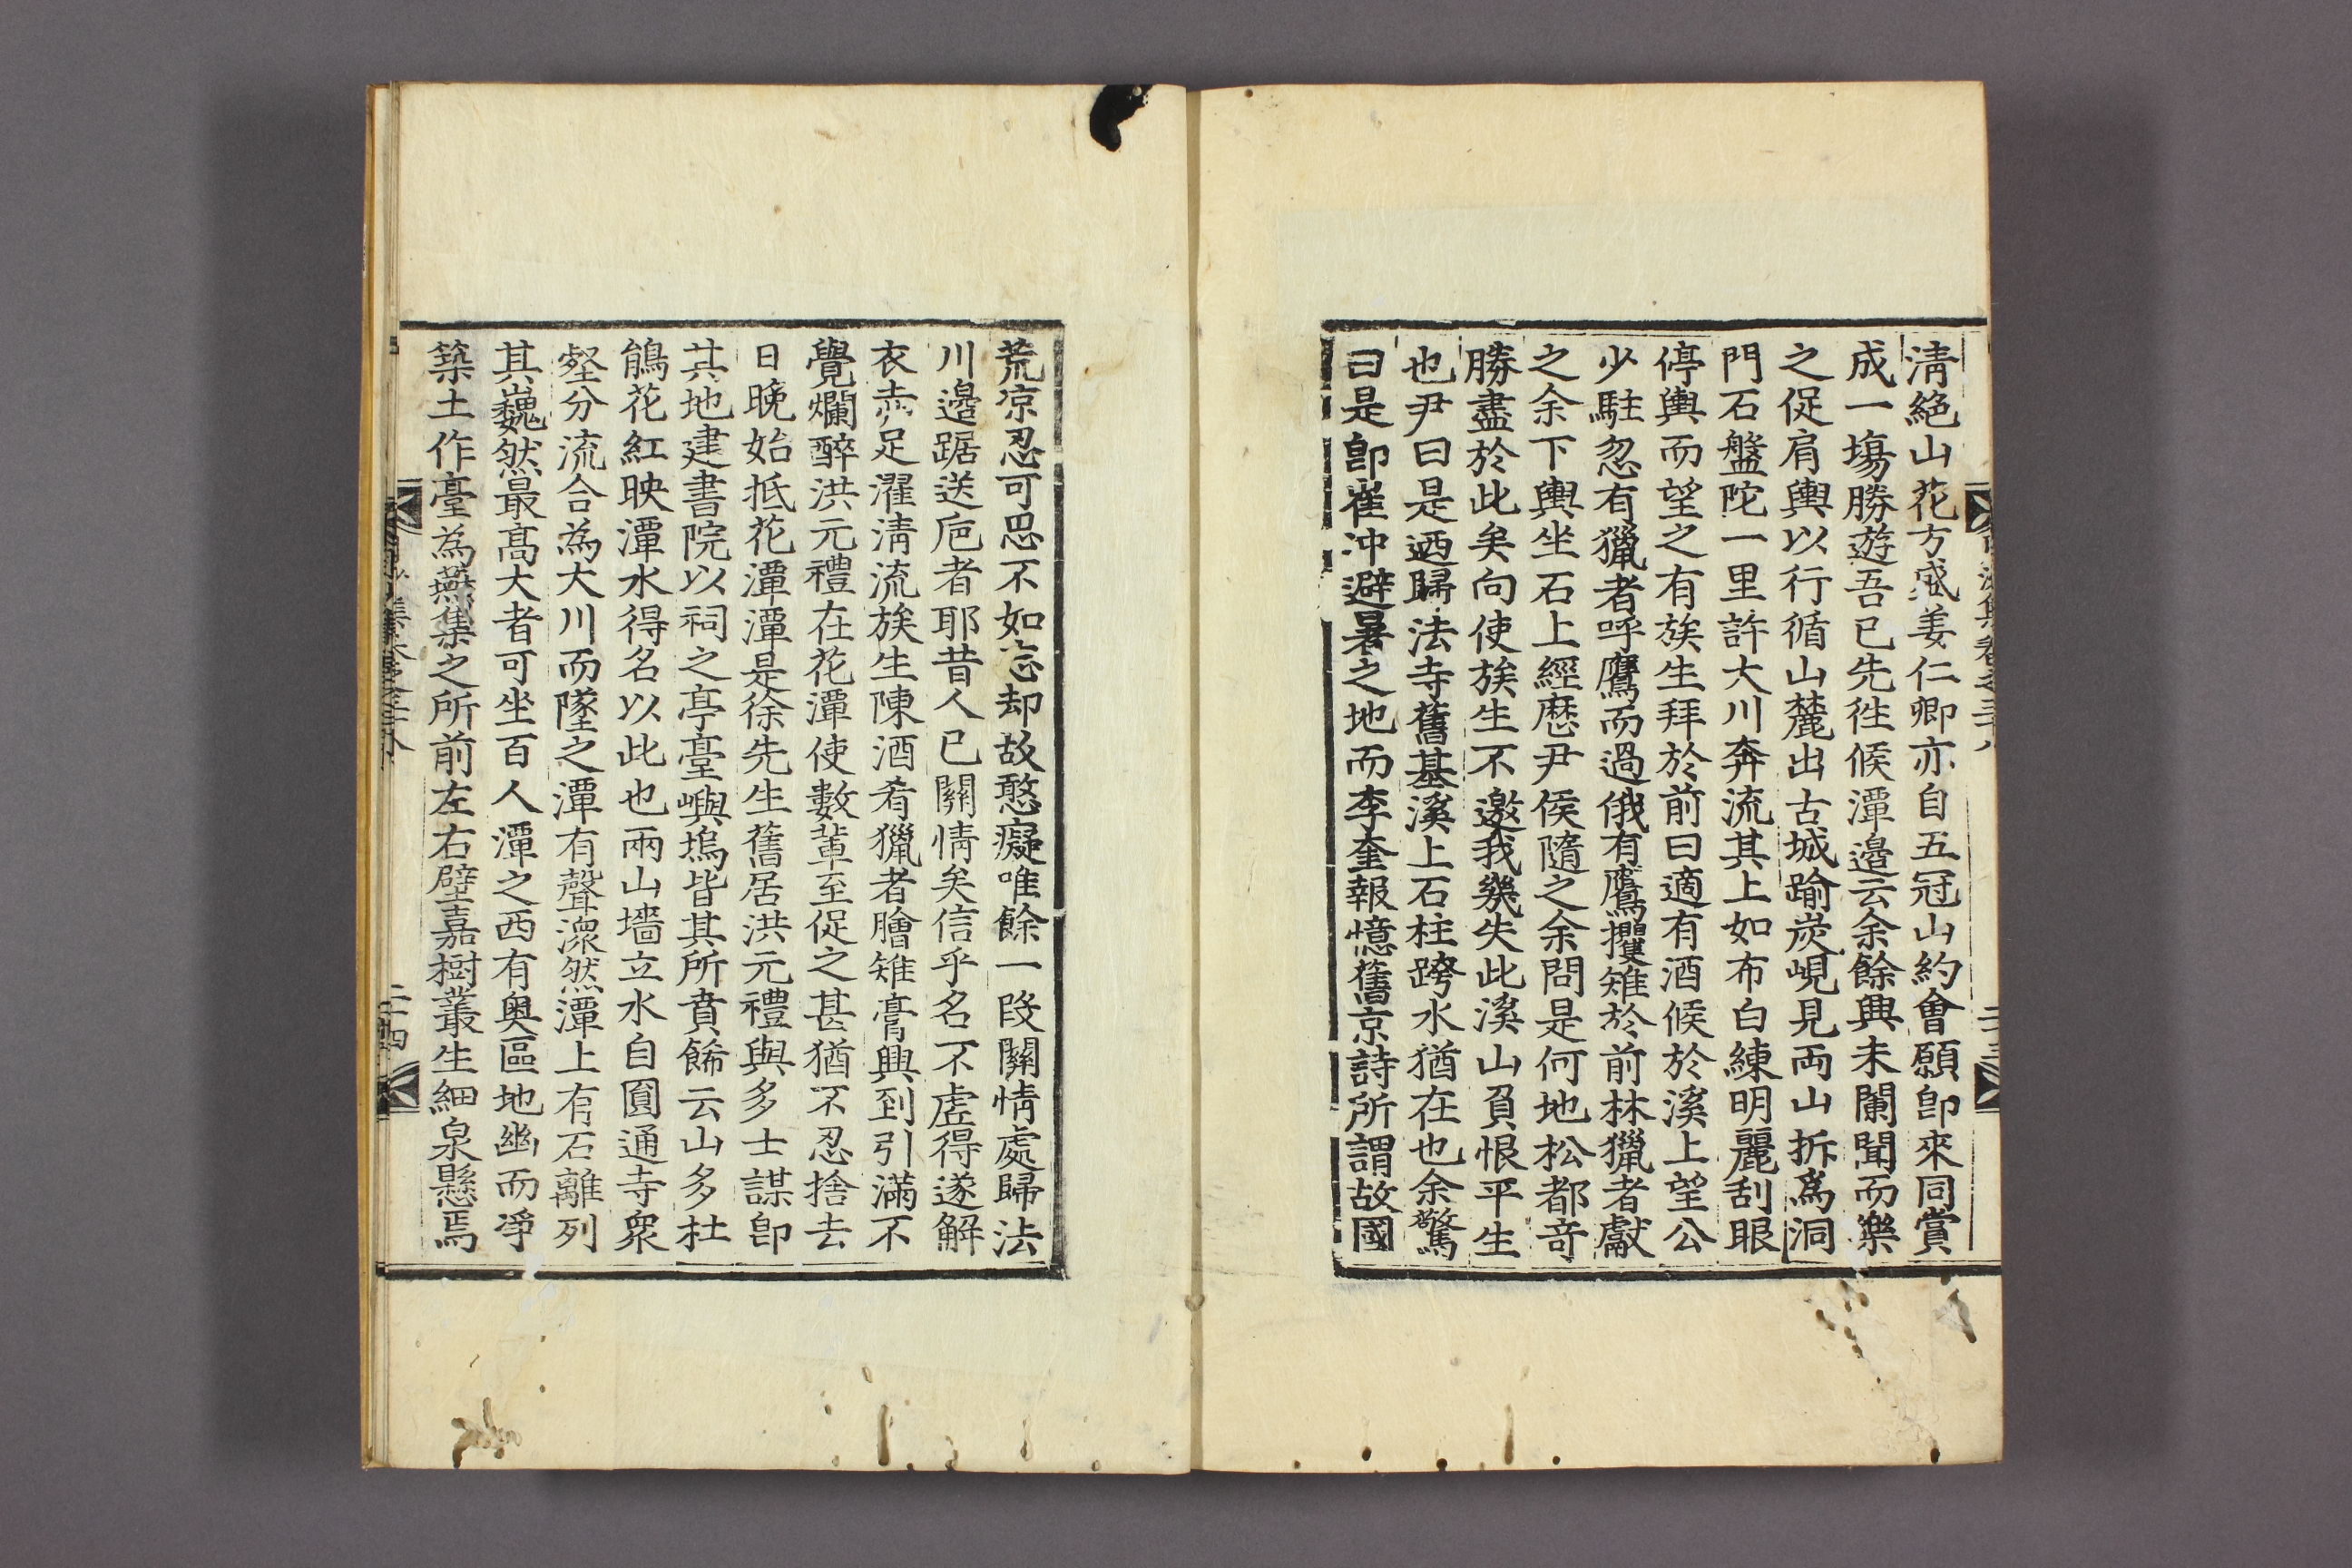 淸絶山花方盛姜仁卿亦自五冠山約會願卽來同賞
成一塲勝遊吾已先徃候潭邉云余餘興未闌聞而樂
之促肩輿以行循山麓出古城踰炭峴見両山拆爲洞
門石盤陀一里許大川奔流其上如布白練明麗刮眼
停輿而望之有族生拜於前曰適有酒候於溪上望公
少駐忽有獵者呼鷹而過俄有鷹攫雉於前林獵者獻
之余下輿坐石上經歷尹侯隨之余問是何地松都竒
勝盡於此矣向使族生不邀我幾失此溪山負恨平生
也尹曰是迺歸法寺舊基溪上石柱跨水猶在也余驚
曰是卽崔冲避暑之地而李奎報憶舊京詩所謂故國
荒凉忍可思不如忘却故憨癡唯餘一段關情處歸法
川邉踞送巵者耶昔人已關情矣信乎名不虛得遂解
衣赤足濯淸流族生陳酒肴獵者膾雉膏興到引滿不
覺爛醉洪元禮在花潭使數軰至促之甚猶不忍捨去
日晚始抵花潭潭是徐先生舊居洪元禮與多士謀卽
其地建書院以祠之亭臺嶼塢皆其所賁餙云山多杜
鵑花紅映潭水得名以此也兩山墻立水自圓通寺衆
壑分流合為大川而墜之潭有聲㶁然潭上有石離列
其巍然最髙大者可坐百人潭之西有奥區地幽而淨
築土作臺為燕集之所前左右壁嘉樹叢生細泉懸焉
二四